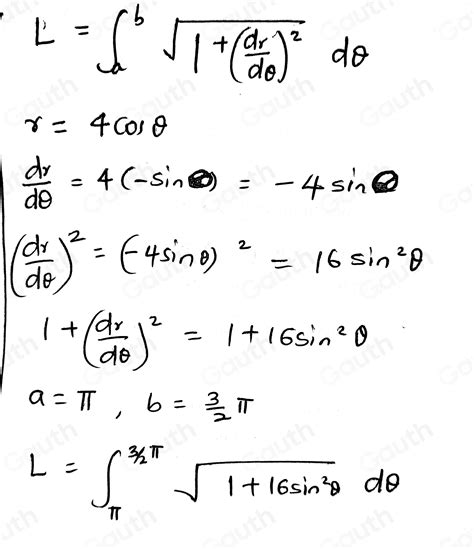 L = ∫_a^b √(1 + (dr/dθ)²) dθ
r = 4 cos θ
dr/dθ = 4(-sin θ) = -4 sin θ
(dr/dθ)² = (-4 sin θ)² = 16 sin²θ
1 + (dr/dθ)² = 1 + 16 sin²θ
a = π , b = 3/2 π
L = ∫_π^{3/2 π} √(1 + 16 sin²θ) dθ